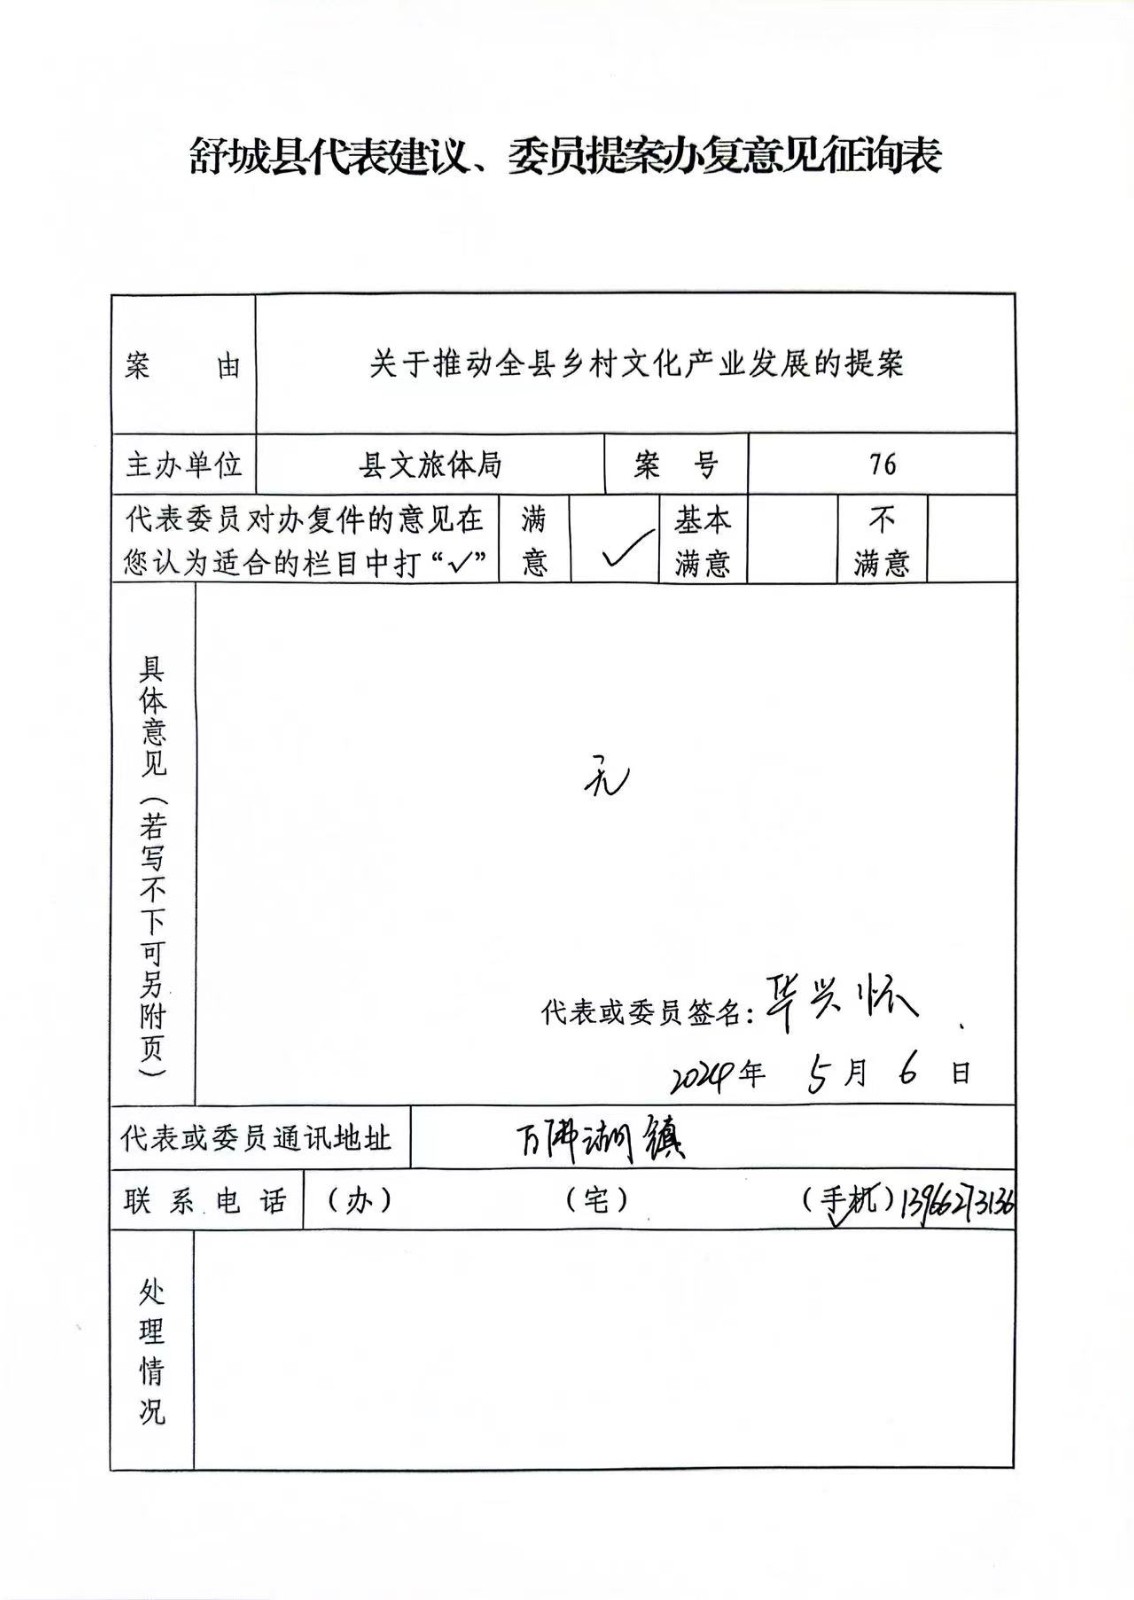 舒城县代表建议、委员提案办复意见征询表
案 由
关于推动全县乡村文化产业发展的提案
主办单位
县文旅体局
案 号
76
代表委员对办复件的意见在
您认为适合的栏目中打“√”
满
意
✓
基本
满意
不
满意
具体意见（若写不下可另附页）
无
代表或委员签名：华兴怀
2024年 5月 6日
代表或委员通讯地址
万佛湖镇
联系电话
（办）
（宅）
（手机）13966273136
处理情况